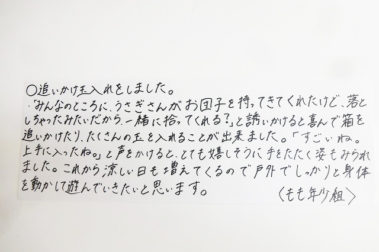 ○追いかけ玉入れをしました。
・「みんなのところに、うさぎさんがお団子を持ってきてくれたけど、落と
しちゃったみたいだから、一緒に拾ってくれる？」と誘いかけると喜んで箱を
追いかけたり、たくさんの玉を入れることが出来ました。「すごいね。
上手に入ったね。」と声をかけると、とても嬉しそうに手をたたく姿もみられ
ました。これから涼しい日も増えてくるので戸外でしっかりと身体
を動かして遊んでいきたいと思います。
〈もも年少組〉